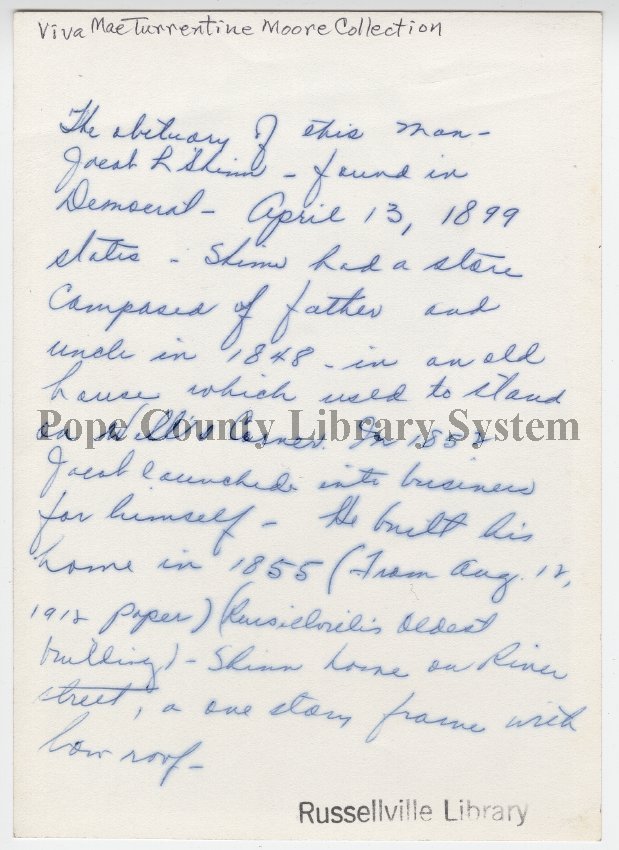 Viva Mae Turrentine Moore Collection
The obituary of this man -
Jacob L Shinn - found in
Democrat - April 13, 1899
states - Shinn had a store
Composed of father and
uncle in 1848 - in an old
house which used to stand
on Corner. In 1852
Pope County Library System
Jacob launched into business
for himself - He built his
home in 1855 (From Aug. 12,
1912 paper) (Russellville's oldest
building) - Shinn home on River
street, a one story frame with
low roof -
Russellville Library